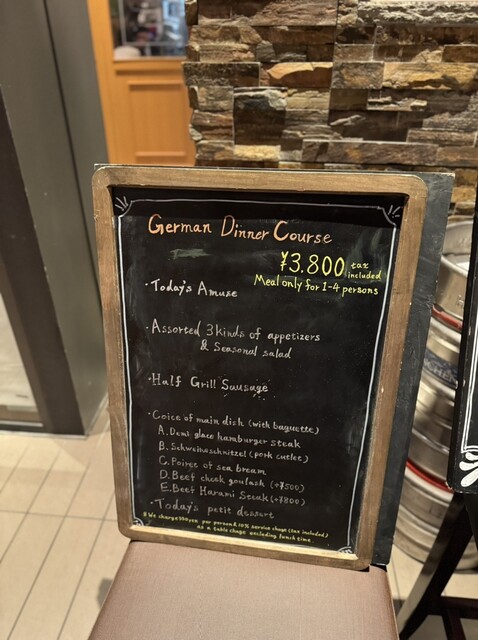 German Dinner Course
¥3.800 tax included
Meal only for 1-4 persons
・Today's Amuse
・Assorted 3 kinds of appetizers
& Seasonal salad
・Half Grill Sausage
・Coice of main dish (with baguette)
A. Demi glace hamburger steak
B. Schweinschnitzel (pork cutlet)
C. Poiret of sea bream
D. Beef cheek goulash (+¥500)
E. Beef Harami Steak (+¥800)
・Today's petit dessert
※We charge yen per person & 10% service charge (tax included)
as a table charge excluding lunch time.